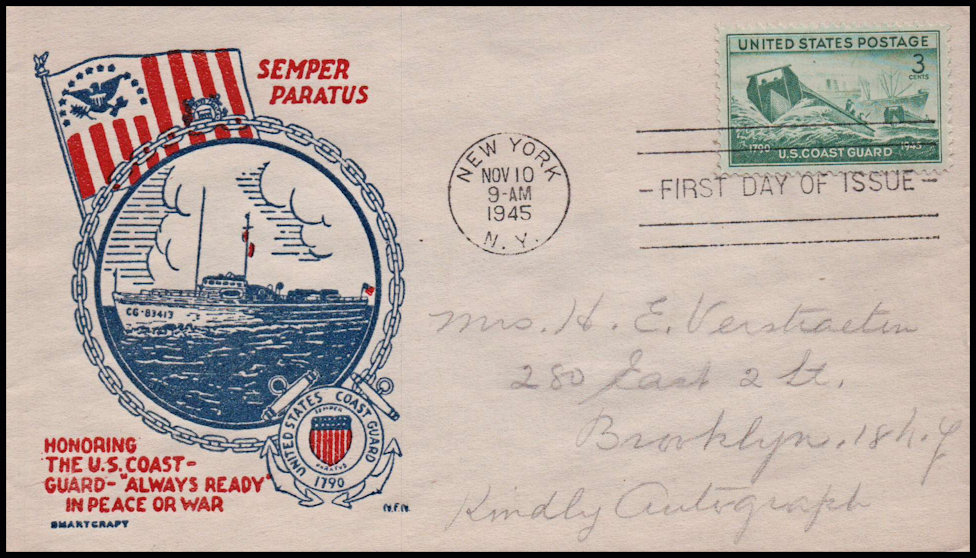 SEMPER
PARATUS
CG-83413
UNITED STATES COAST GUARD
SEMPER
PARATUS
1790
HONORING
THE U.S. COAST-
GUARD-"ALWAYS READY"
IN PEACE OR WAR
SMARTCRAFT
N.F.N.
NEW YORK
NOV 10
9-AM
1945
N.Y.
UNITED STATES POSTAGE
3
CENTS
1790 1945
U.S. COAST GUARD
-FIRST DAY OF ISSUE-
Mrs. H. E. Verstraeten
280 East 2 St.
Brooklyn. 18 N.Y
Kindly Autograph